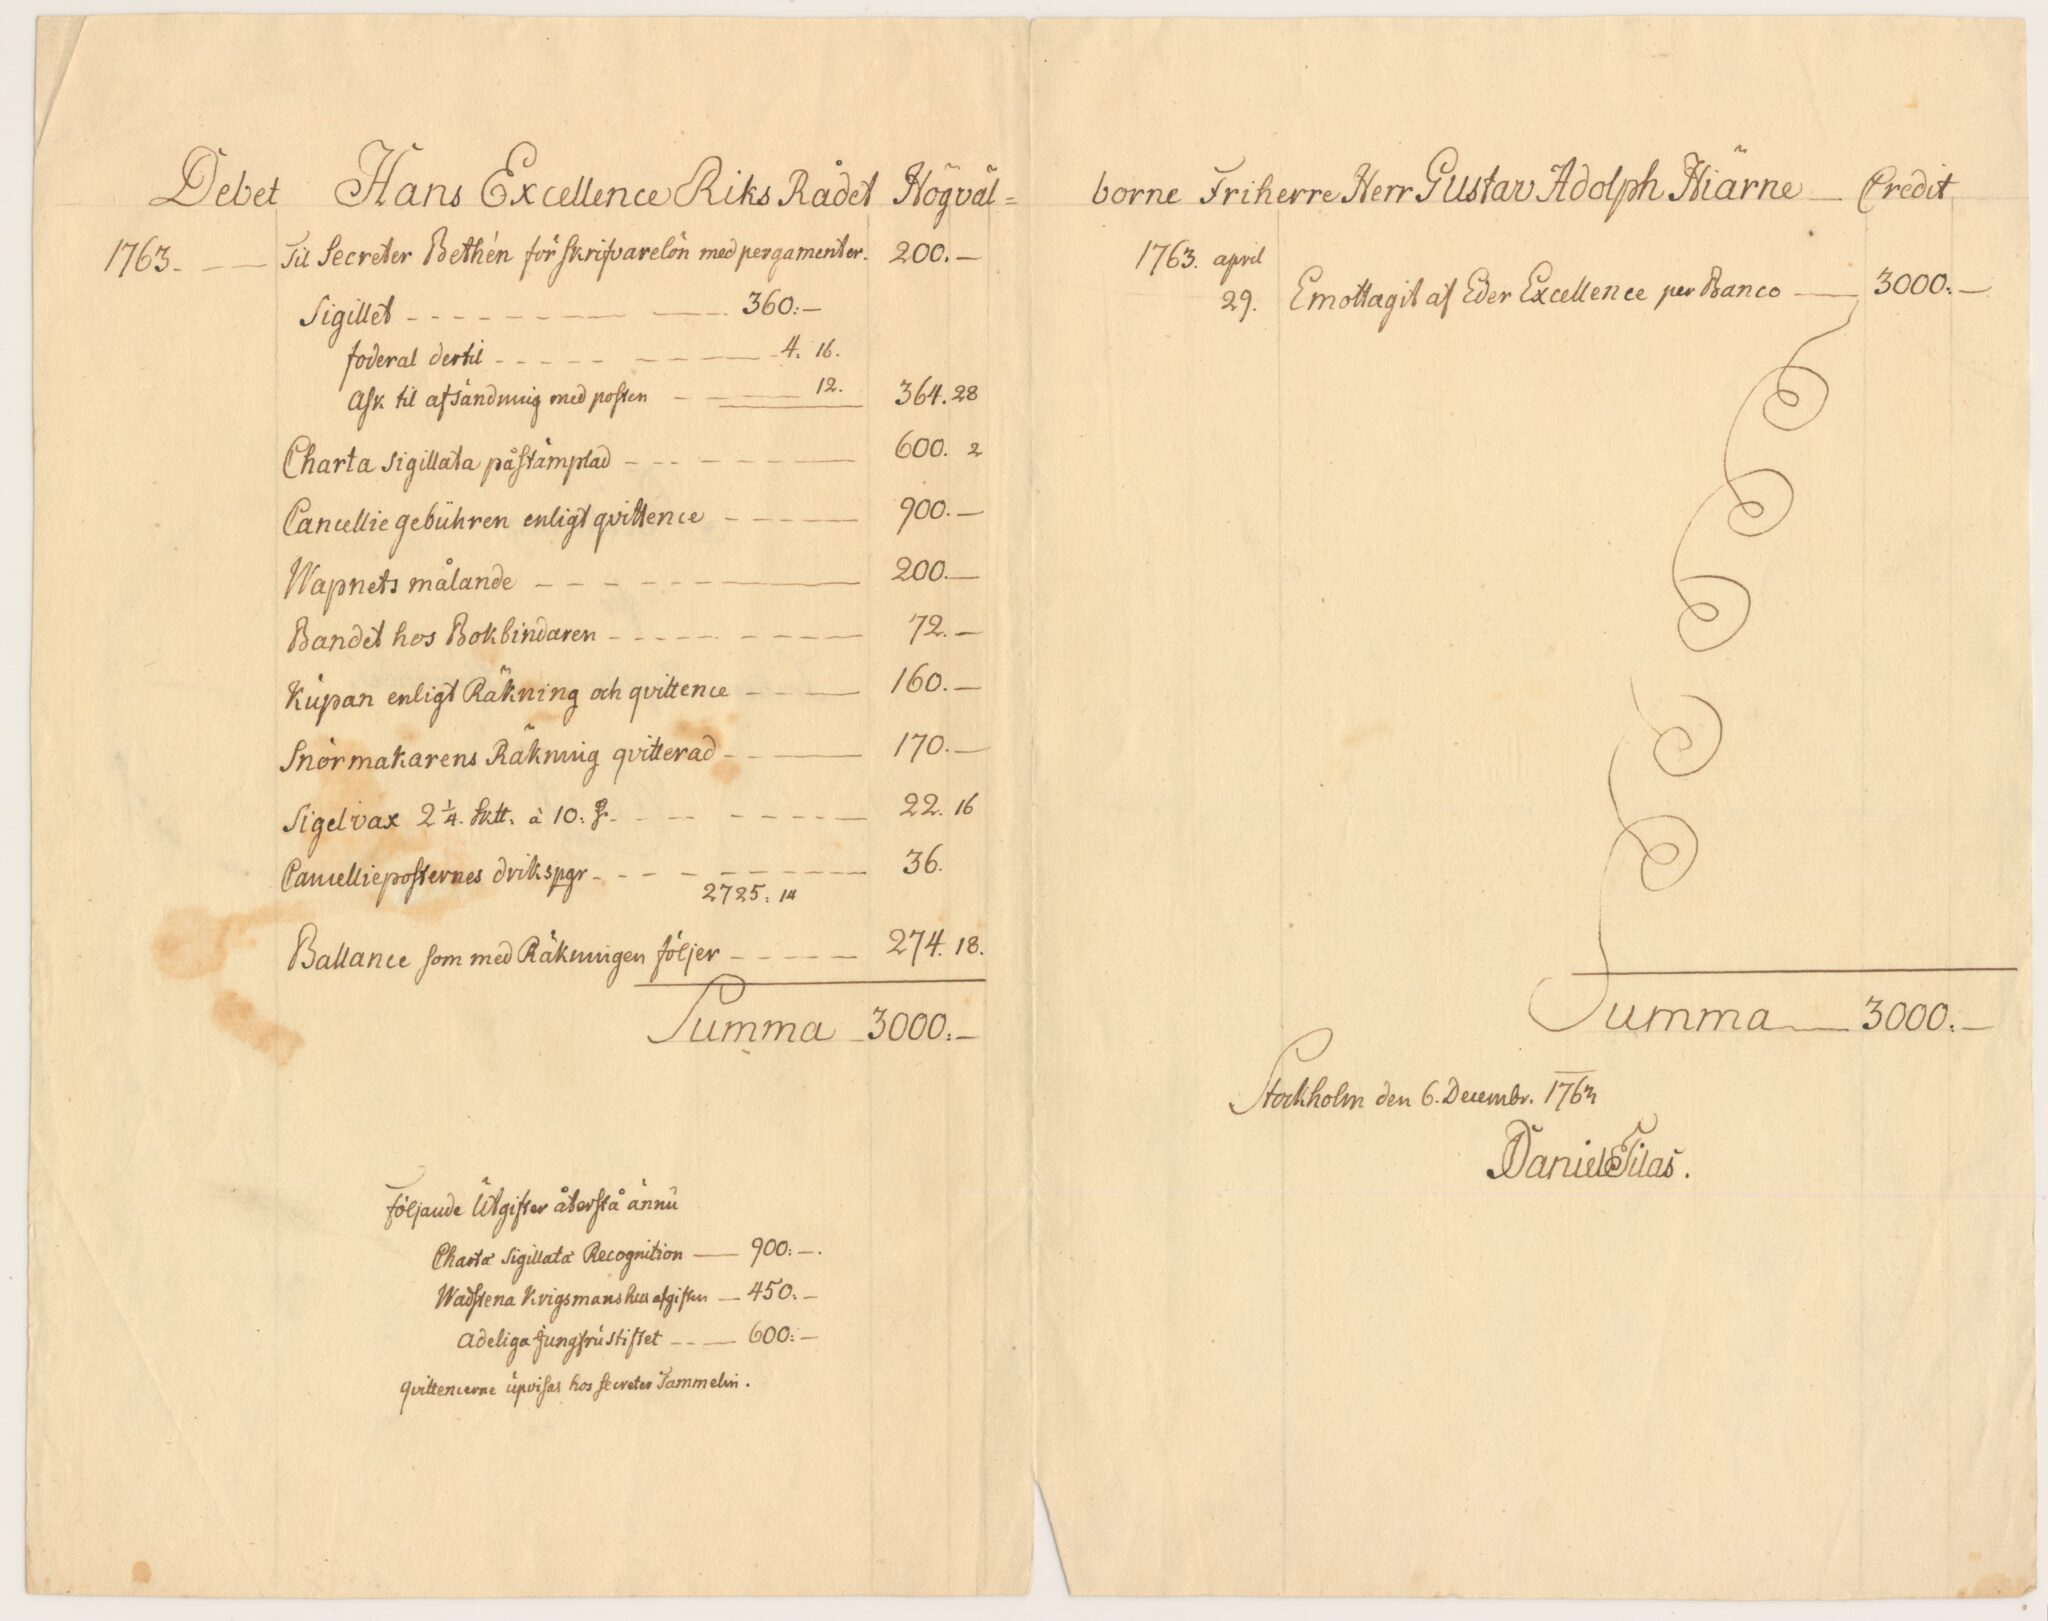 Debet Hans Excellence Riks Rådet Högväl=
1763. Til Secreter Bethén för skrifvarelön med pergamenter. 200.—
Sigillet 360:—
foderal dertil 4. 16.
Ask til afsändning med posten 12. 364. 28
Charta Sigillata påstämplad 600. 2
Cancellie gebühren enligt qvittence 900.—
Wapnets målande 200.—
Bandet hos Bokbindaren 72.—
Kupan enligt Räkning och qvittence 160.—
Snörmakarens Räkning qvitterad 170.—
Sigelvax 2 1/4. à 10. 22. 16
Cancellieposternes drikspgr 36.
2725. 14
Ballance som med Räkningen följer 274. 18.
Summa 3000:—
Följande Utgifter återstå ännu
Charta Sigillata Recognition 900:—.
Wadstena Krigsmanshus afgiften 450:—
Adeliga Jungfrustiftet 600:—
qvittencerne upvisas hos Secreter Tammelin.
borne Friherre Herr Gustav Adolph Hiärne Credit
1763. april
29. Emottagit af Eder Excellence per Banco 3000:—
Summa 3000:—
Stockholm den 6. Decembr. 1763
Daniel Tilas.